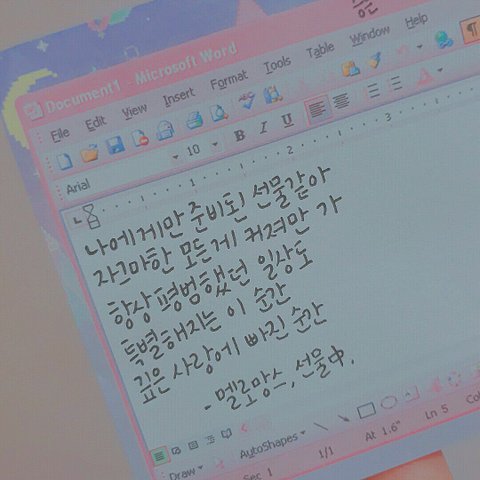 Document1 - Microsoft Word
File Edit View Insert Format Tools Table Window Help
10 B I U
Arial
1 2 3
나에게만 준비된 선물같아
자그마한 모든게 커져만 가
항상 평범했던 일상도
특별해지는 이 순간
깊은 사랑에 빠진 순간
- 멜로망스, 선물中.
Draw AutoShapes
Sec 1 1/1 At 1.6" Ln 5